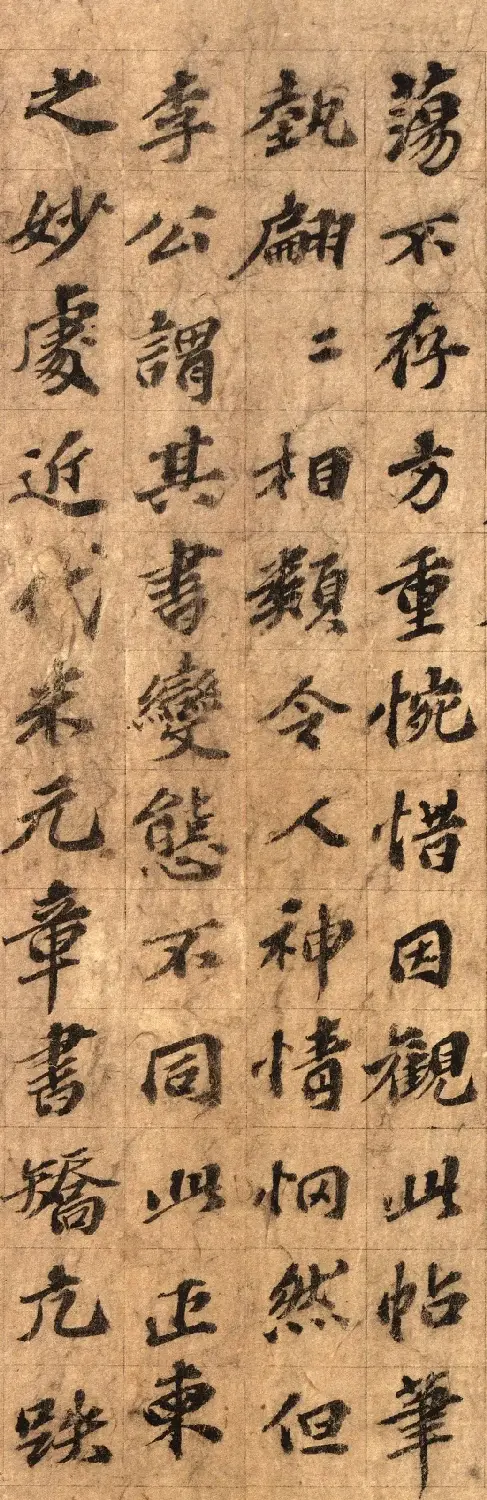 蕩不存方重惋惜因觀此帖筆
埶翩二相類令人神情惘然但
李公謂其書變態不同此正東
之妙處近代米元章書矯亢跌